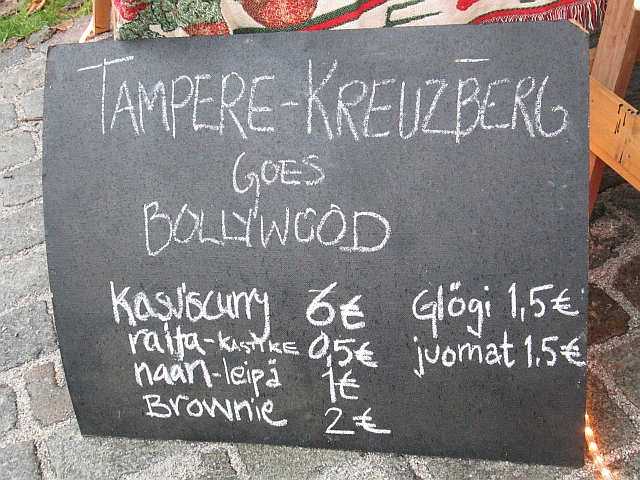 TAMPERE-KREUZBERG
GOES
BOLLYWOOD
Kasviscurry 6€
raita-KASTIKE 0,5€
naan-leipä 1€
Brownie 2€
Glögi 1,5€
juomat 1,5€